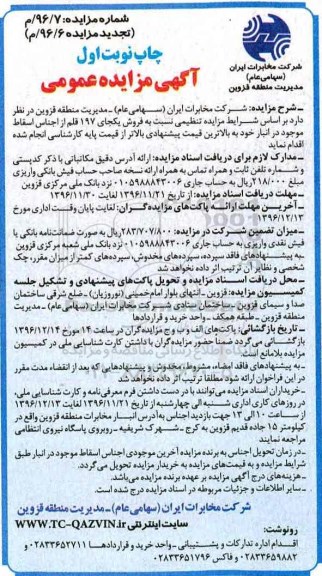 شماره مزایده: ۹۶/۷/م
(تجدید مزایده ۹۶/۶/م)
چاپ نوبت اول
آگهی مزایده عمومی
شرکت مخابرات ایران
(سهامی عام)
مدیریت منطقه قزوین
ـ شرح مزایده: شرکت مخابرات ایران (سهامی عام) ـ مدیریت منطقه قزوین در نظر
دارد بر اساس شرایط مزایده تنظیمی نسبت به فروش یکجای ۱۹۷ قلم از اجناس اسقاط
موجود در انبار خود به بالاترین قیمت پیشنهادی بالاتر از قیمت پایه کارشناسی انجام شده
اقدام نماید
ـ مدارک لازم برای دریافت اسناد مزایده: ارائه آدرس دقیق مکاتباتی با ذکر کدپستی
و شماره تلفن ثابت و همراه تماس به همراه ارائه نسخه صاحب حساب فیش بانکی واریزی
به مبلغ ۲۱۸/۰۰۰ ریال به حساب جاری ۰۱۰۵۹۸۸۸۴۳۰۰۶ نزد بانک ملی مرکزی قزوین
ـ مهلت دریافت اسناد مزایده: از تاریخ ۱۳۹۶/۱۱/۲۱ لغایت ۱۳۹۶/۱۱/۳۰
ـ آخرین مهلت ارائه پاکت‌های مزایده‌گران: لغایت پایان وقت اداری مورخ
۱۳۹۶/۱۲/۱۳
ـ میزان تضمین شرکت در مزایده: ۲۸۳/۷۰۷/۸۰۰ ریال به صورت ضمانت‌نامه بانکی یا
فیش نقدی واریزی به حساب جاری ۰۱۰۵۹۸۸۸۴۳۰۰۶ نزد بانک ملی شعبه مرکزی قزوین
ـ به پیشنهادهای فاقد سپرده، سپرده‌های مخدوش، سپرده‌های کمتر از میزان مقرر، چک
شخصی و نظایر آن ترتیب اثر داده نخواهد شد
ـ محل دریافت اسناد مزایده و تحویل پاکت‌های پیشنهادی و تشکیل جلسه
کمیسیون مزایده: قزوین ـ انتهای بلوار امام خمینی (نوروزیان) ـ ضلع شرقی ساختمان
صدا و سیمای قزوین ـ ساختمان ستادی شرکت مخابرات ایران (سهامی عام) ـ مدیریت
منطقه قزوین ـ طبقه همکف ـ واحد خرید و قراردادها
ـ تاریخ بازگشائی: پاکت‌های الف و ب و ج مزایده‌گران در ساعت ۱۴ مورخ ۱۳۹۶/۱۲/۱۴
بازگشائی می‌گردد ضمنا حضور مزایده‌گران با داشتن کارت شناسایی ملی در کمیسیون
مزایده بلامانع است.
ـ به پیشنهادهای فاقد امضاء، مشروط، مخدوش و پیشنهادهایی که بعد از انقضاء مدت مقرر
در این فراخوان ارائه شود مطلقا ترتیب اثر داده نخواهد شد
ـ خریداران اسناد مزایده می‌توانند با در دست داشتن فرم معرفی‌نامه و کارت شناسایی ملی،
در روزهای کاری اداری شنبه الی چهارشنبه از تاریخ ۱۳۹۶/۱۱/۲۱ لغایت ۱۳۹۶/۱۲/۱۳
از ساعت ۱۰ الی ۱۳ جهت بازدید اجناس به آدرس انبار مخابرات منطقه قزوین واقع در
کیلومتر ۱۵ جاده قدیم قزوین به کرج ـ شهرک شریفیه ـ روبروی پاسگاه نیروی انتظامی
مراجعه نمایند
ـ در زمان تحویل اجناس به برنده مزایده آخرین موجودی اجناس اسقاط موجود در انبار طبق
شرایط مزایده و به قیمت‌های مزایده به خریدار مزایده تحویل می‌گردد.
ـ هزینه‌های درج آگهی مزایده بر عهده برنده مزایده می‌باشد.
ـ سایر اطلاعات و جزئیات مربوطه در اسناد مزایده درج شده است.
شرکت مخابرات ایران (سهامی عام) ـ مدیریت منطقه قزوین
سایت اینترنتی WWW.TC-QAZVIN.ir
رونوشت:
اقدام: اداره تدارکات و پشتیبانی ـ واحد خرید و قراردادها ۰۲۸۳۳۶۵۲۷۱۱ و
۰۲۸۳۳۶۵۹۸۸۲ و فاکس ۰۲۸۳۳۶۵۱۷۹۶